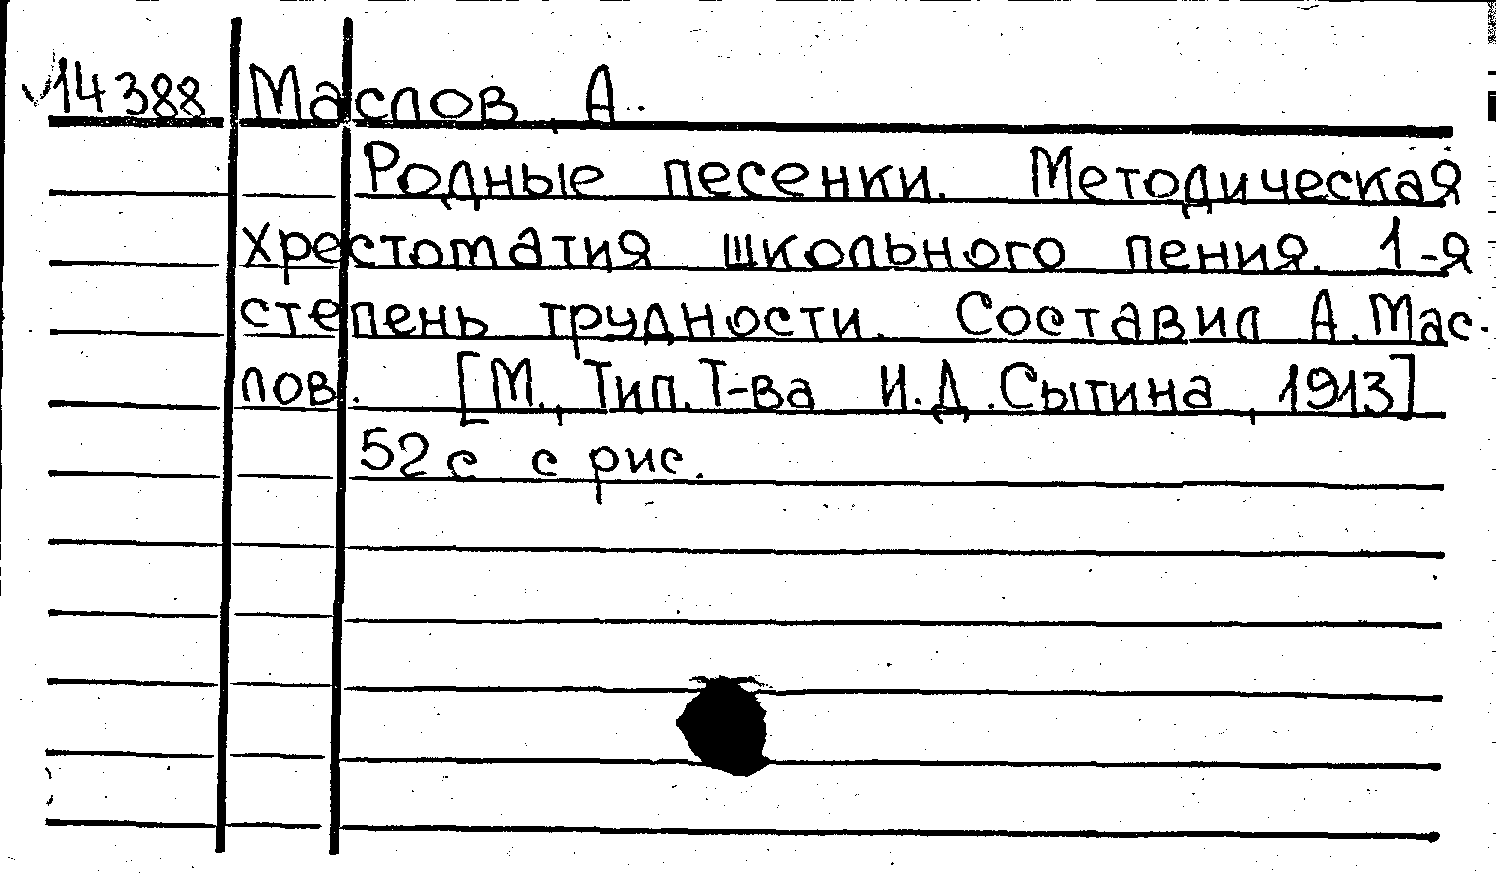 14388 Маслов, А.
Родные песенки. Методическая
хрестоматия школьного пения. 1-я
степень трудности. Составил А. Мас-
лов. [М., Тип. Т-ва И. Д. Сытина, 1913]
52 с с рис.